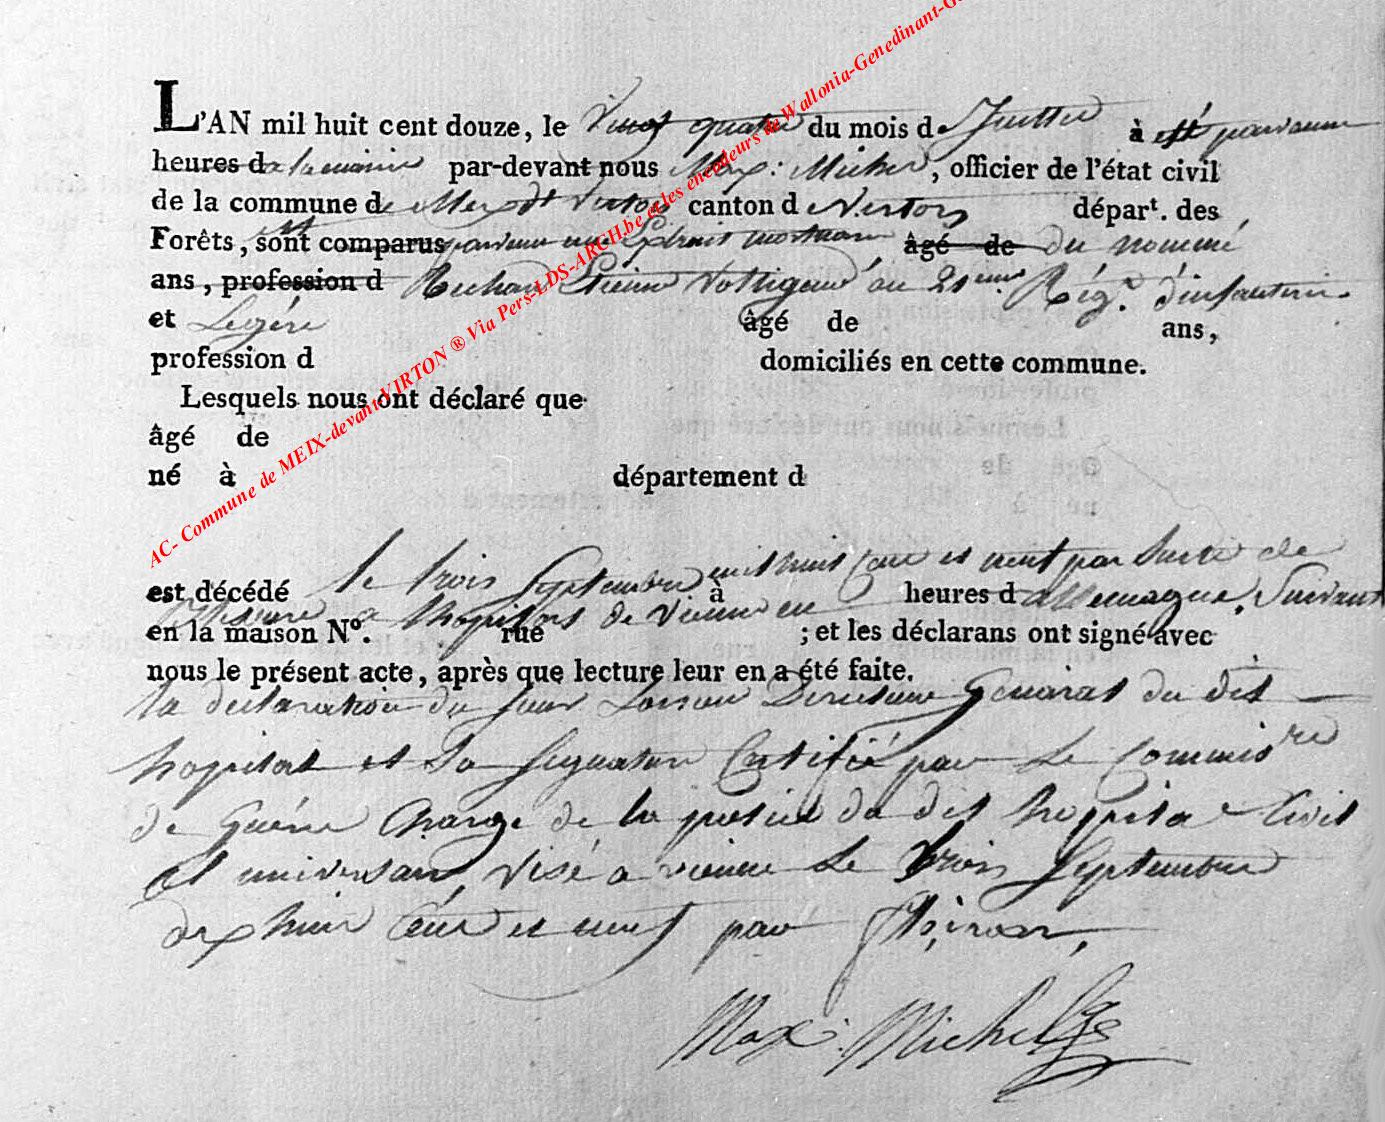 L'AN mil huit cent douze, le Vingt quatre du mois d Juillet à est parvenu
heures de la mairie par-devant nous Max: Michel, officier de l'état civil
de la commune de Meix dt Virton canton d Virton départ. des
Forêts, sont comparus est parvenu un Extrait mortuaire âgé de du nommé
ans, profession d Etienne Voltigeur au 21eme Rég.t d'infanterie
et Legére âgé de ans,
profession d domiciliés en cette commune.
Lesquels nous ont déclaré que
âgé de
né à département d
le trois Septembre mil huit Cent et neuf par Suite de
est décédé à heures d
a hopital de Vienne en allemagne, Suivant
en la maison N°. rue ; et les déclarans ont signé avec
nous le présent acte, après que lecture leur en a été faite.
la declaration du Sieur Directeur General du dit
hopital et Sa Signature Certifié par Le Commisre
de Guerre Chargé de la police du dit hopital Civil
et universal, visé a vienne Le trois Septembre
dix huit Cent et neuf par
Max: Michel
AC- Commune de MEIX-devant VIRTON ® Via Pers-LDS-ARCH.be et les encodeurs de Wallonia-Genedinant-G